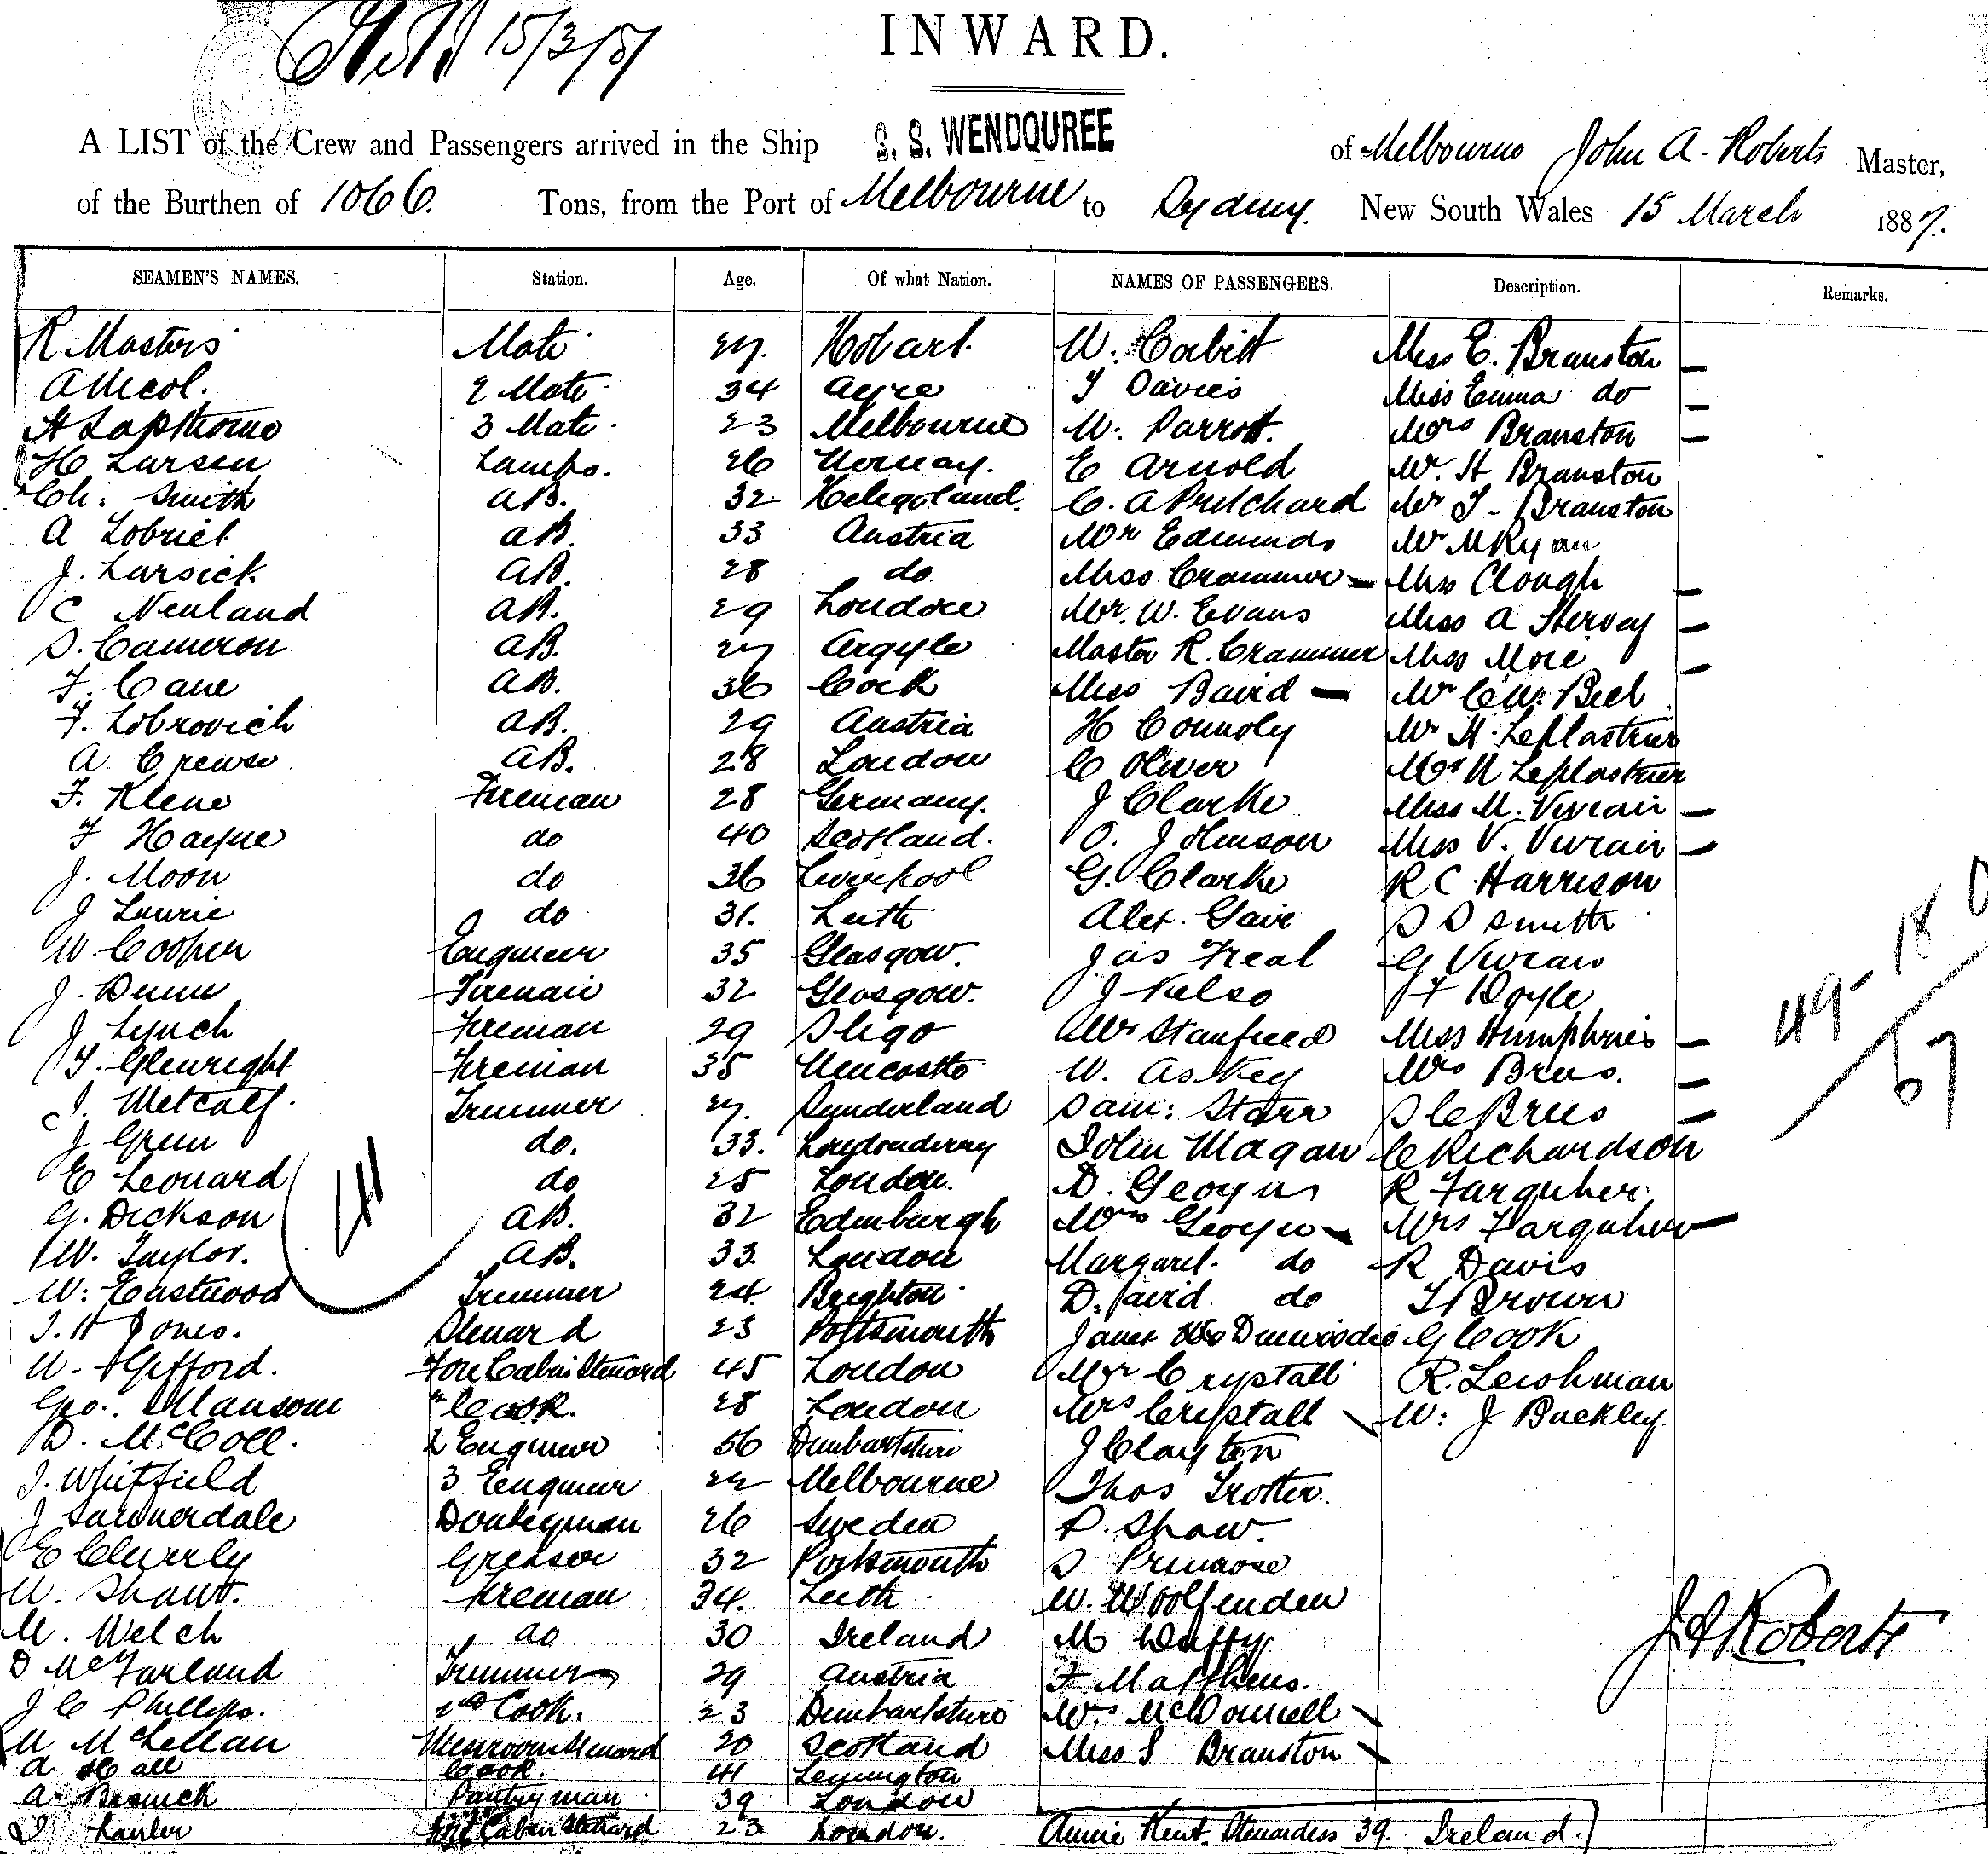 15/3/87
INWARD.
A LIST of the Crew and Passengers arrived in the Ship S. S. WENDOUREE of Melbourne John A. Roberts Master,
of the Burthen of 1066. Tons, from the Port of Melbourne to Sydney. New South Wales 15 March 1887.
SEAMEN'S NAMES. Station. Age. Of what Nation. NAMES OF PASSENGERS. Description. Remarks.
R Masters Mate 27. Hobart. W. Corbitt Miss E. Branston —
A Nicol. 2 Mate 34 Ayre Davies Miss Emma do —
H Lapthorne 3 Mate 23 Melbourne W. Parrott. Mrs Branston —
H Larsen Lamps. 26 Norway. E Arnold Mr. H Branston
Ch. Smith AB. 32 Heligoland. C. A Pritchard Mr T Branston
A Lobriel AB. 33 Austria Mr Edmunds Mr M Ryan
J. Lursich AB. 28 do. Miss Crammer — Miss Clough —
C Newland AB. 29 London Mr. W. Evans Miss A Hervey —
D. Cameron AB. 27 Argyle Master R. Crammer Miss More —
F. Cane AB. 36 Cork Miss David — Mr C W. Bell
F. Lobrovich AB. 29 Austria H Connoly Mr H. Leplastrier
A. Crewse AB. 28 London C Oliver Mrs H Leplastrier
F. Klene Fireman 28 Germany. J Clarke Miss M. Vivrain —
F Hayne do 40 Scotland. O. Johnson Miss V. Vivrain —
J. Moon do 36 Liverpool G. Clarke R C Harrison
J Laurie do 31. Leith Alex. Gair S D Smith
W. Cooper Engineer 35 Glasgow. Jas Freal G Vivrain
J. Dunn Fireman 32 Glasgow. J Kelso F Doyle
J Lynch Fireman 29 Sligo Mr Stanfield Miss Humphries —
T. Glenright Fireman 35 Newcastle W. Askey Mrs Brees. —
J. Metcalf. Trimmer 27. Sunderland Sam: Starr S le Brees —
J Green do. 33. Londonderry John Magan C Richardson
E Leonard do 25 London. D. Geogus R Farquher
G. Dickson AB. 32 Edinburgh Mrs Geogus Mrs Farquher —
W. Taylor. AB. 33. London Margaret do R Davis
W. Eastwood Trimmer 24. Brighton David do H Brown
J. H Jones. Steward 23 Portsmouth Janet Dunwoodie G Cook
W. Gifford. Fore Cabin Steward 45 London Mr Crystall R. Leishman
Geo. Mansom " Cook. 28 London Mrs Crystall W. J Buckley.
D. McColl. 2 Engineer 56 Dumbartshire J Clayton
J. Whitfield 3 Engineer 22 Melbourne Thos Trotter.
J Sarnnerdale Donkeyman 26 Sweden P. Shaw.
E Cluverly Greaser 32 Portsmouth S Primrose
W. Shaw. Fireman 34. Leith W. Woolfenden
M. Welch do 30 Ireland M Duffy
D McFarland Trimmer 29 Austria F Matthews.
J C Phillips. 2nd Cook. 23 Dumbartshire Mrs McDonnell
M McLellan Messroom Steward 20 Scotland Miss S Branston
A Hall Cook. 41 Lemington
A. Beswick Pantryman 39 London
Lawler Fore Cabin Steward 23 London. Annie Kent. Stewardess 39. Ireland.
41
49-18
67
J A Roberts